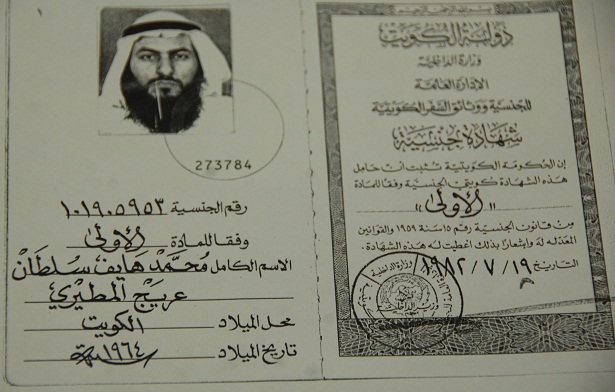 بسم الله الرحمن الرحيم
دولة الكويت
وزارة الداخلية
الإدارة العامة
للجنسية ووثائق السفر الكويتية
شهادة جنسية
إن الحكومة الكويتية تثبت أن حامل
هذه الشهادة كويتي الجنسية وفقا للمادة
"الأولى"
من قانون الجنسية رقم ١٥ لسنة ١٩٥٩ والقوانين
المعدلة له وإشعارا بذلك أعطيت له هذه الشهادة.
التاريخ ١٩٨٢/٧/١٩
وزارة الداخلية
273784
رقم الجنسية ١٠١٩٠٥٩٥٣
وفقا للمادة الأولى
الاسم الكامل محمد هايف سلطان
عريج المطيري
محل الميلاد الكويت
تاريخ الميلاد ١٩٦٤